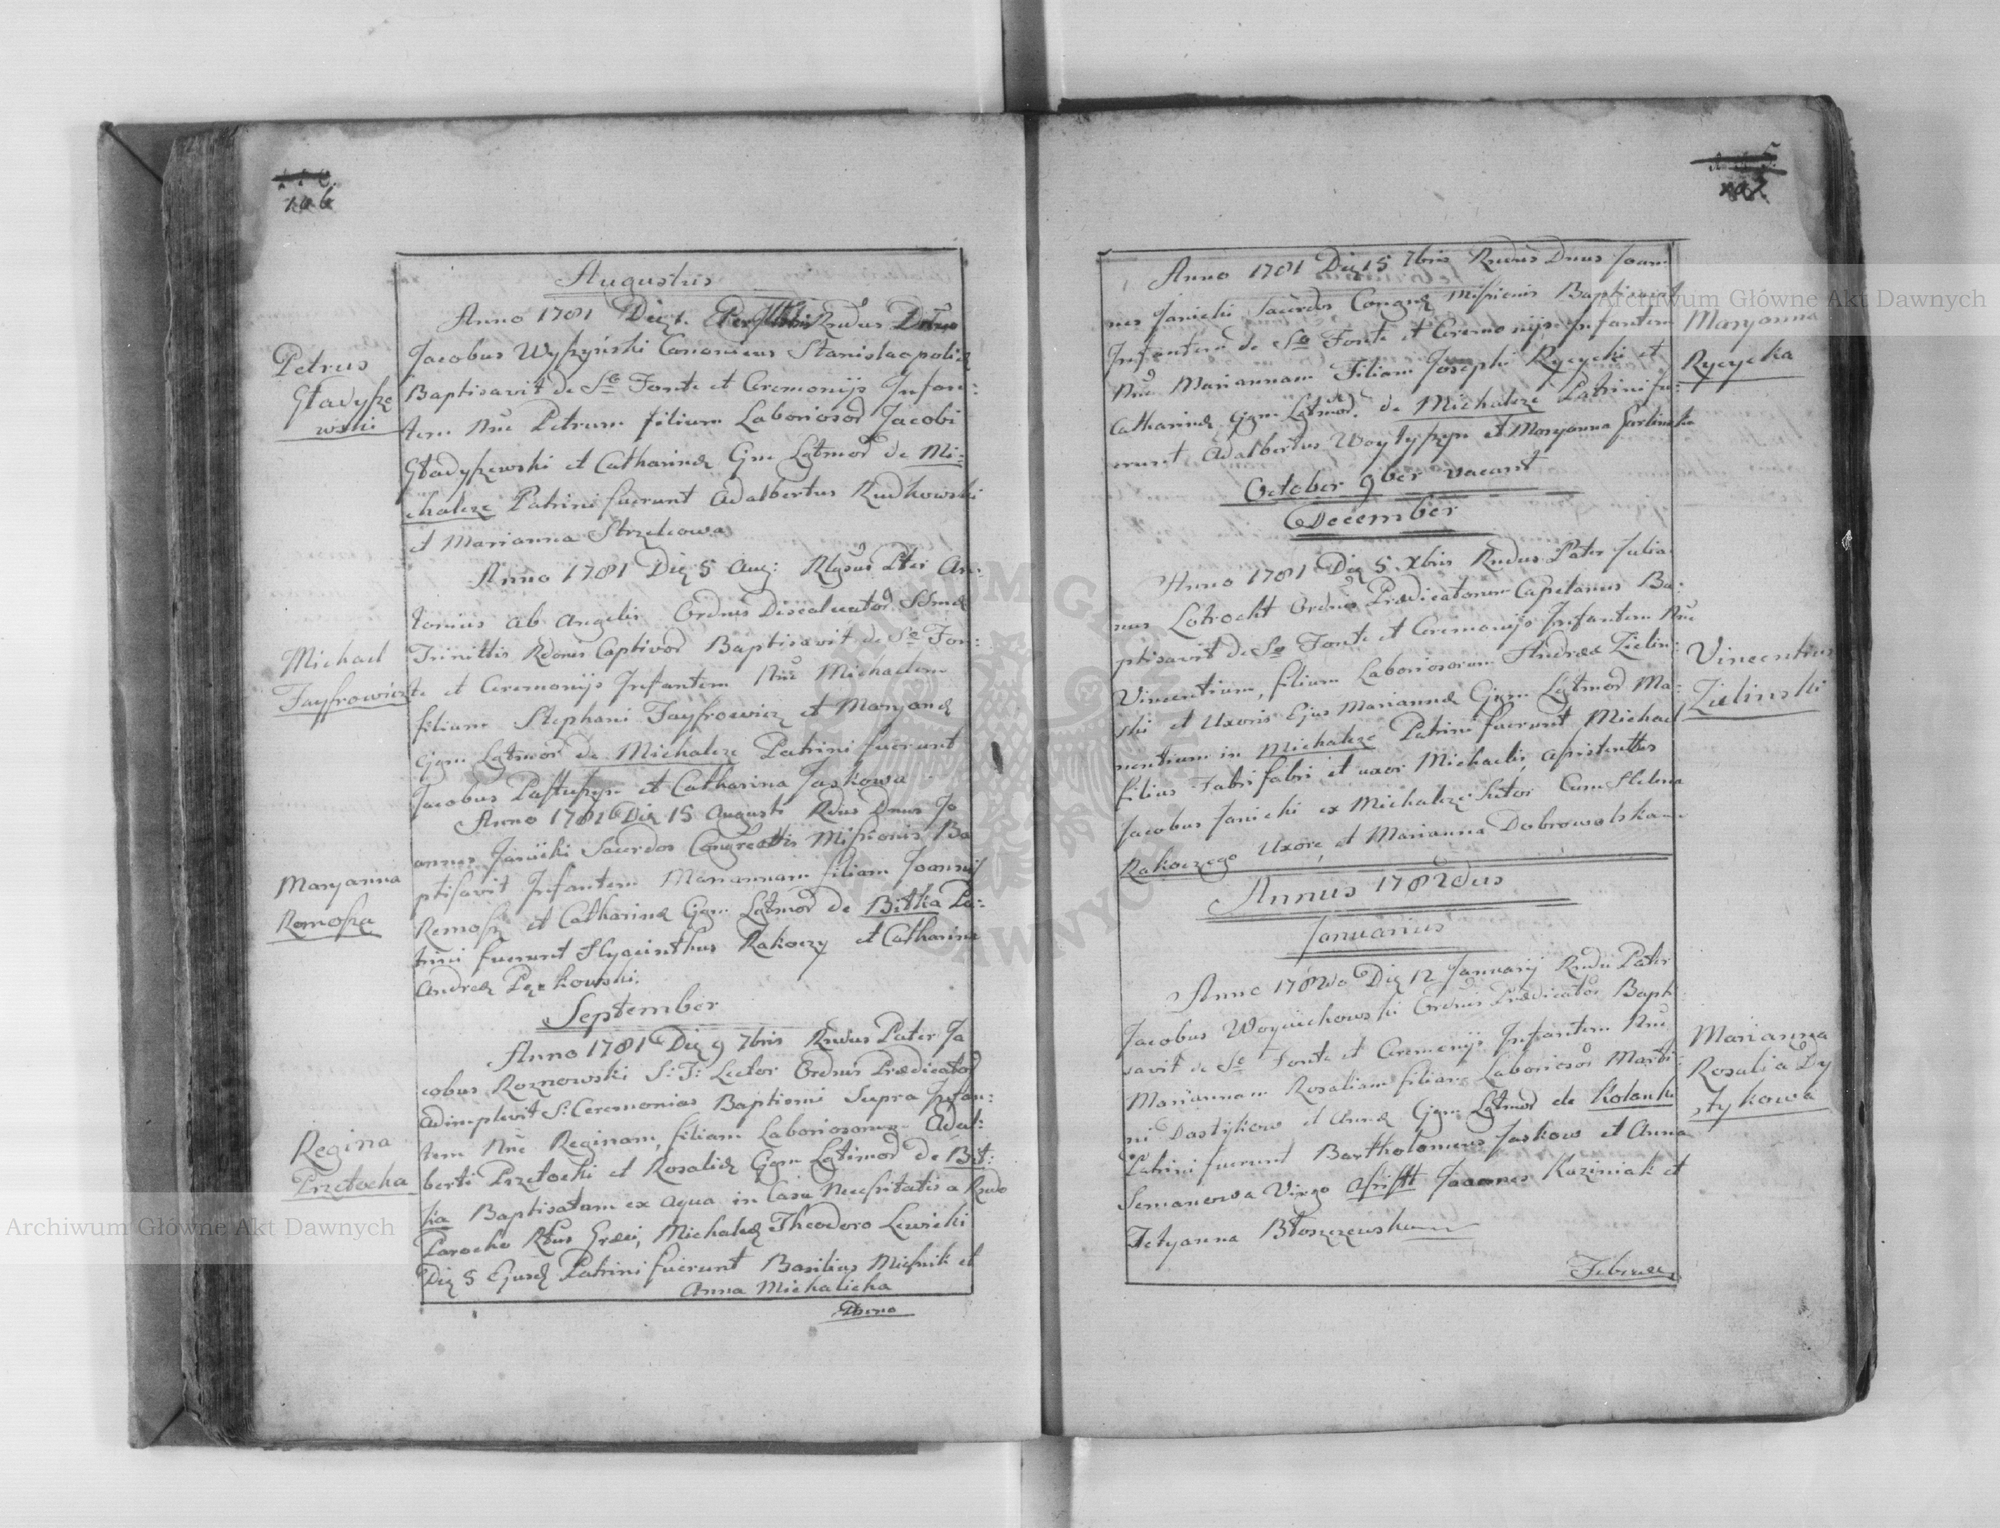 106
Augustus
Anno 1781 Die 1. Rndus Dnus
Jacobus Wyszyński Canonicus Stanislaopolien
Baptisavit de So Fonte et Ceremonijs Infan:
tem Nne Petrum filium Laboriosor Jacobi
Gładyszewski et Catharinæ Cjgm Lgtmor de Mi=
chalcze Patrini fuerunt Adalbertus Rudkowski
et Marianna Strzelcowa
Petrus
Gładysze
wski
Anno 1781 Die 5 Aug: An:
tonius ab Angelis Ordnis Discalceator SSmæ
Trinittis Rdonis Captivor Baptisavit de So Fon:
te et Ceremonijs Infantem Nne Michaelem
filium Stephani Fayfrowicz et Maryanæ
Cjgm Lgtmor de Michalcze Patrini fuerunt
Jacobus Pastuszyn et Catharina Jaskowa
Michael
Fayfrowicz
Anno 1781 Die 15 Augusti Rdus Dnus Jo
annes Janicki Sacerdos Congregttis Missionis Ba
ptisavit Infantem Mariannam filiam Joannis
Remosz et Catharinæ Cjgm Lgtmor de Bitka Pa:
trini fuerunt Hyacinthus Rakoczy et Catharina
Andreæ Pęzkowski.
Maryanna
Remosza
September
Anno 1781 Die 9 7bris Rndus Pater Ja
cobus Roznowski S: T: Lector Ordnis Prædicator
adimplevit S: Ceremonias Baptismi Supra Infan:
tem Nne Reginam, filiam Laboriosorum Adal:
berti Przetocki et Rosaliæ Cjgm Lgtimor de Bit:
ka Baptisatam ex aqua in Casu Necessitatis a Rndo
Parocho Rtus Græci, Michalcz Theodoro Lewicki
Die 5 Ejusd Patrini fuerunt Basilius Misnik et
Anna Michalicha
Regina
Przetocka
Anno
107
Anno 1781 Die 15 7bris Rndus Dnus Joan:
nes Janicki Sacerdos Congnis Missionis Baptisavit
Infantem de So Fonte et Ceremonijs Infantem
Nne Mariannam Filiam Josephi Rycycki et
Catharinæ Cjgm Lgtmor de Michalcze Patrini fu:
erunt Adalbertus Woytyszyn et Maryanna
Maryanna
Rycycka
October 9ber vacant
December
Anno 1781 Die 5 Xbris Rndus Pater Julia
nus Lotrocht Ordnis Prædicatorum Capelanus Ba:
ptisavit de So Fonte et Ceremonijs Infantem Nne
Vincentium, filium Laboriosorum Andreæ Zielin:
ski et Uxoris Ejus Mariannæ Cjgm Lgtmor Ma:
nentium in Michalcze Patrini fuerunt Michael
filius Fabri fabri et uxor Michaelis, assistenttes
Jacobus Janicki ex Michalcze Sutor Cum Helena
Rakoczego Uxore et Marianna Dobrowolska
Vincentius
Zielinski
Annus 1782dus
Januarius
Anno 1782do Die 12 Januarij Rndu Pater
Jacobus Woyciechowski Ordnis Prædicator Bapti
savit de So Fonte et Ceremonijs Infantem Nne
Mariannam Rosaliam filiam Laboriosor Marti
ni Dastijkow et Annæ Cjgm Lgtmor de Kolanki
Patrini fuerunt Bartholomeus Jaskow et Anna
Semanowa Virgo assistt Joannes Kuziniak et
Tetyanna Błoszczewska
Marianna
Rosalia Dy
stykowa
Februar
Archiwum Główne Akt Dawnych
Archiwum Główne Akt Dawnych